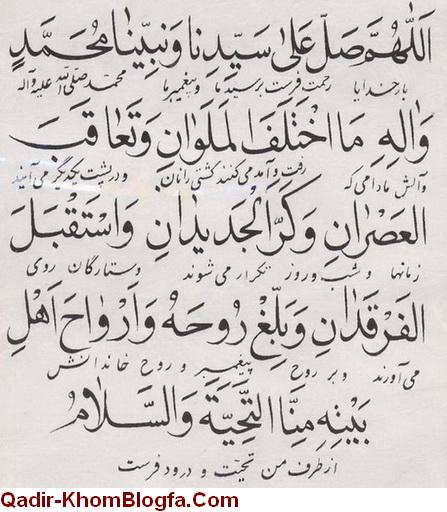 اَللّٰهُمَّ صَلِّ عَلىٰ سَيِّدِنا وَنَبِيِّنا مُحَمَّدٍ
بارخدایا رحمت فرست بر سید ما و پیغمبر ما محمد صلی الله علیه و آله
وَالِهِ مَا اخْتَلَفَ المَلَوانِ وَتَعاقَبَ
و آلش مادامی که رفت و آمد می کنند و در پشت یکدیگر می آیند
العَصْرانِ وَكَرَّ الْجَديدانِ وَاسْتَقْبَلَ
زمانها و شب و روز تکرار می شوند و ستارگان روی
الفَرْقَدانِ وَبَلِّغْ رُوحَهُ وَاَرْواحَ اَهْلِ
می آورند و بر روح پیغمبر و روح خاندانش
بَيْتِهِ مِنَّا التَّحِيَّةَ وَالسَّلامُ
از طرف من تحیت و درود فرست
Qadir-KhomBlogfa.Com